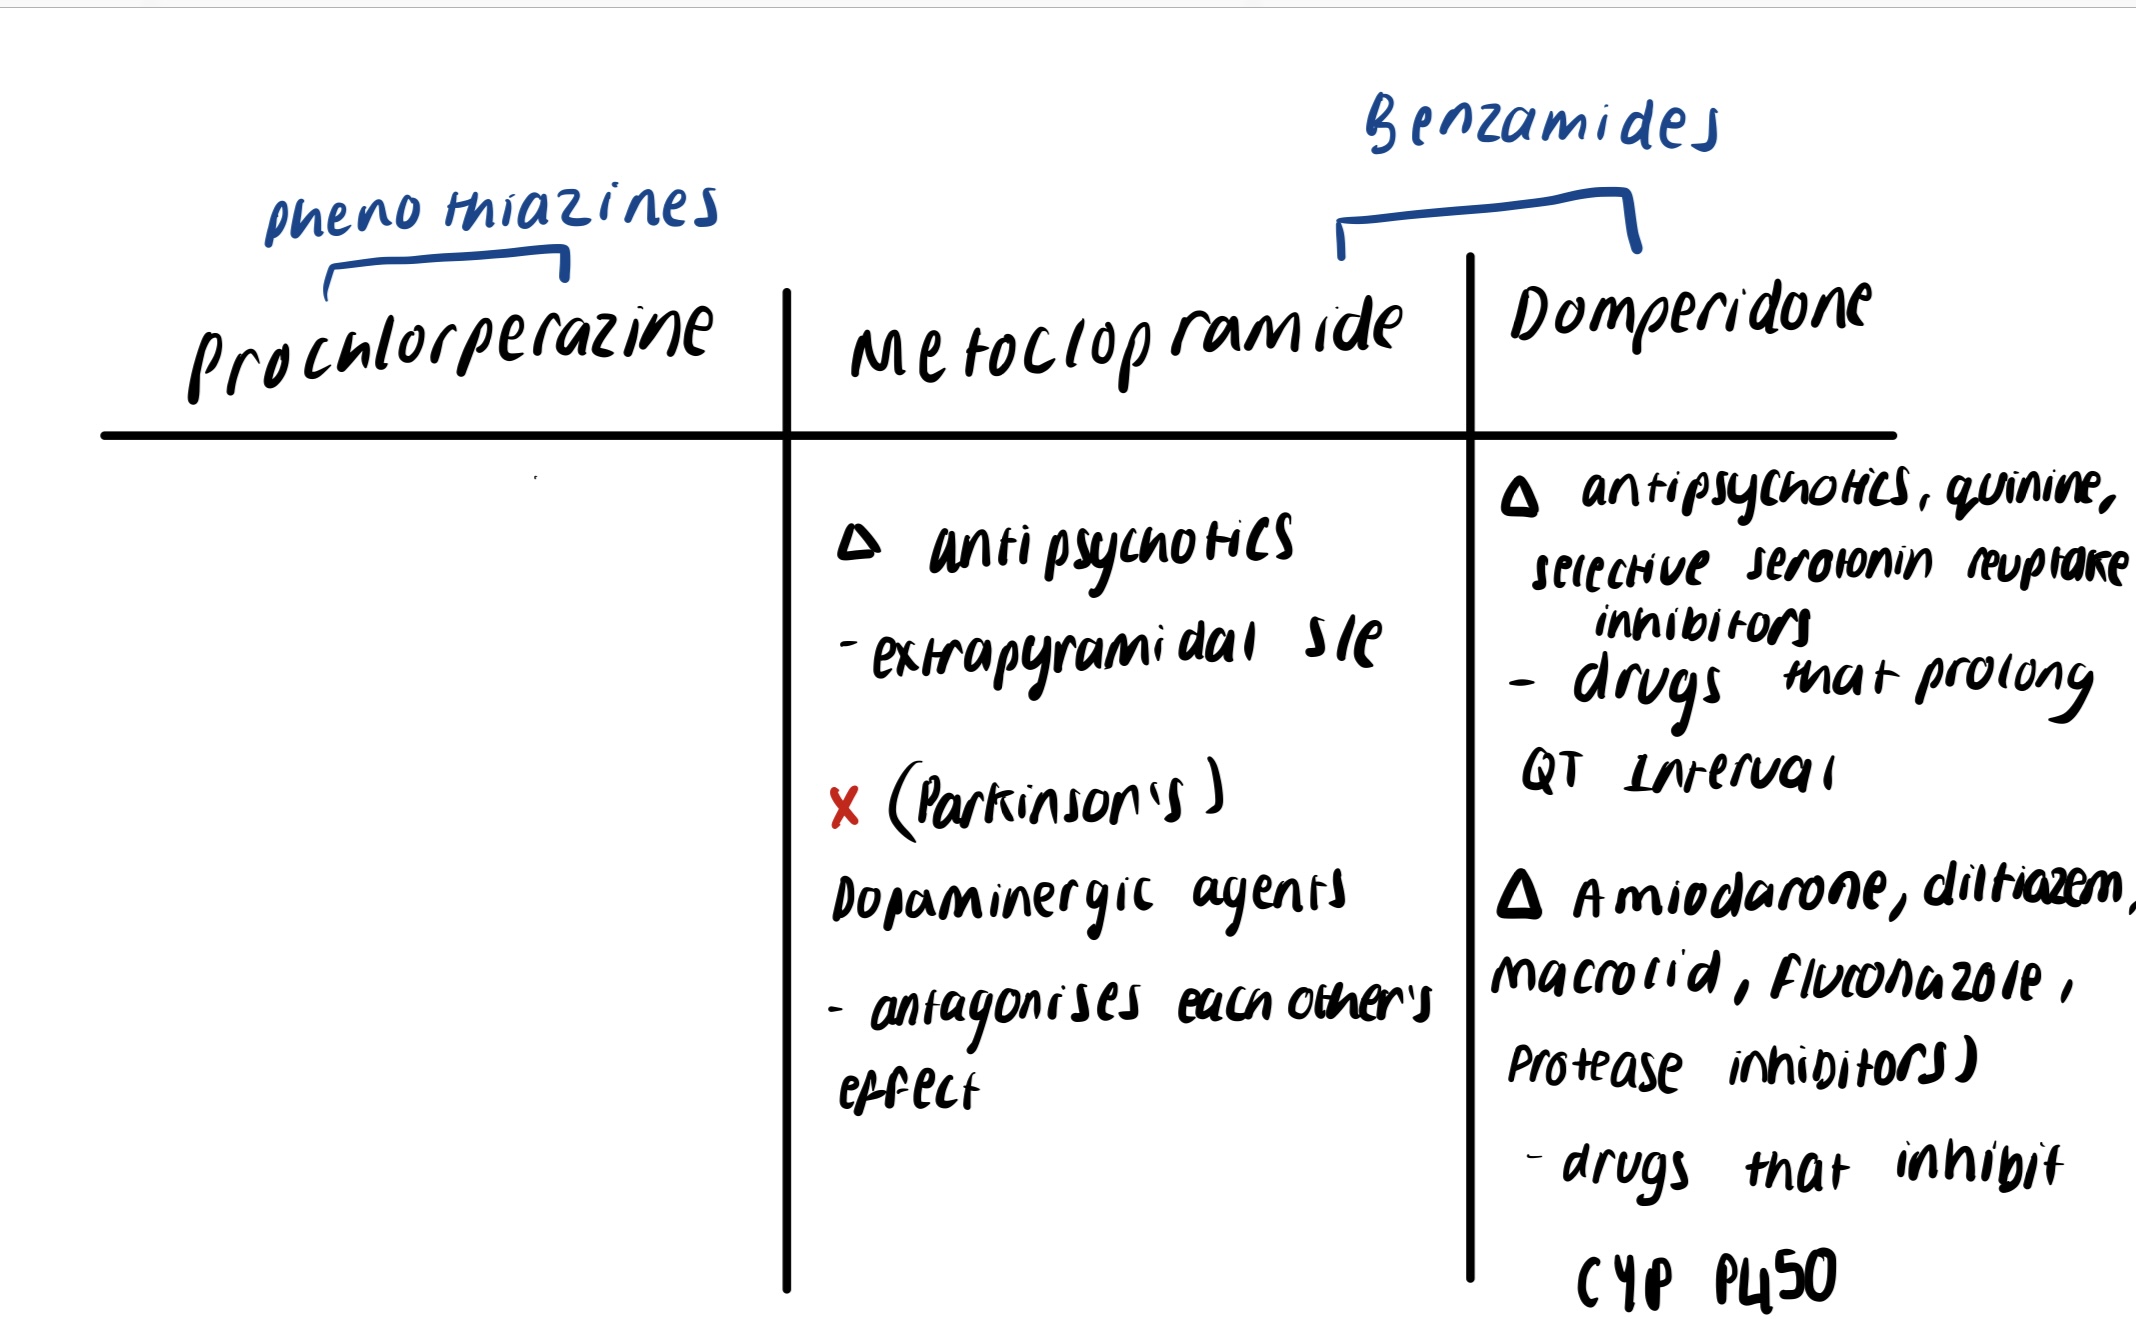 Benzamides
phenothiazines
Prochlorperazine
Metoclopramide
Domperidone
Δ antipsychotics
- extrapyramidal s/e
x (Parkinson's)
Dopaminergic agents
- antagonises each other's
effect
Δ antipsychotics, quinine,
selective serotonin reuptake
inhibitors
- drugs that prolong
QT Interval
Δ Amiodarone, diltiazem,
macrolid, fluconazole,
Protease inhibitors)
- drugs that inhibit
CYP P450